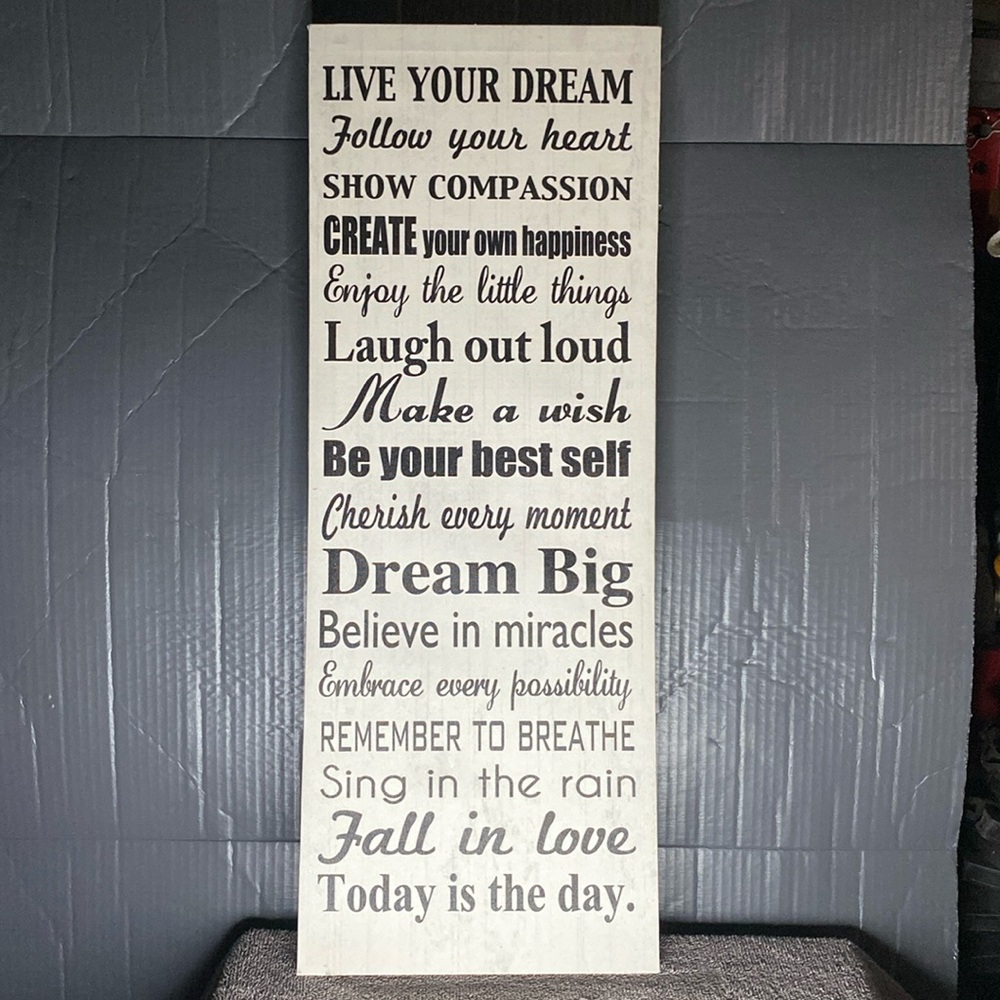 LIVE YOUR DREAM
Follow your heart
SHOW COMPASSION
CREATE your own happiness
Enjoy the little things
Laugh out loud
Make a wish
Be your best self
Cherish every moment
Dream Big
Believe in miracles
Embrace every possibility
REMEMBER TO BREATHE
Sing in the rain
Fall in love
Today is the day.